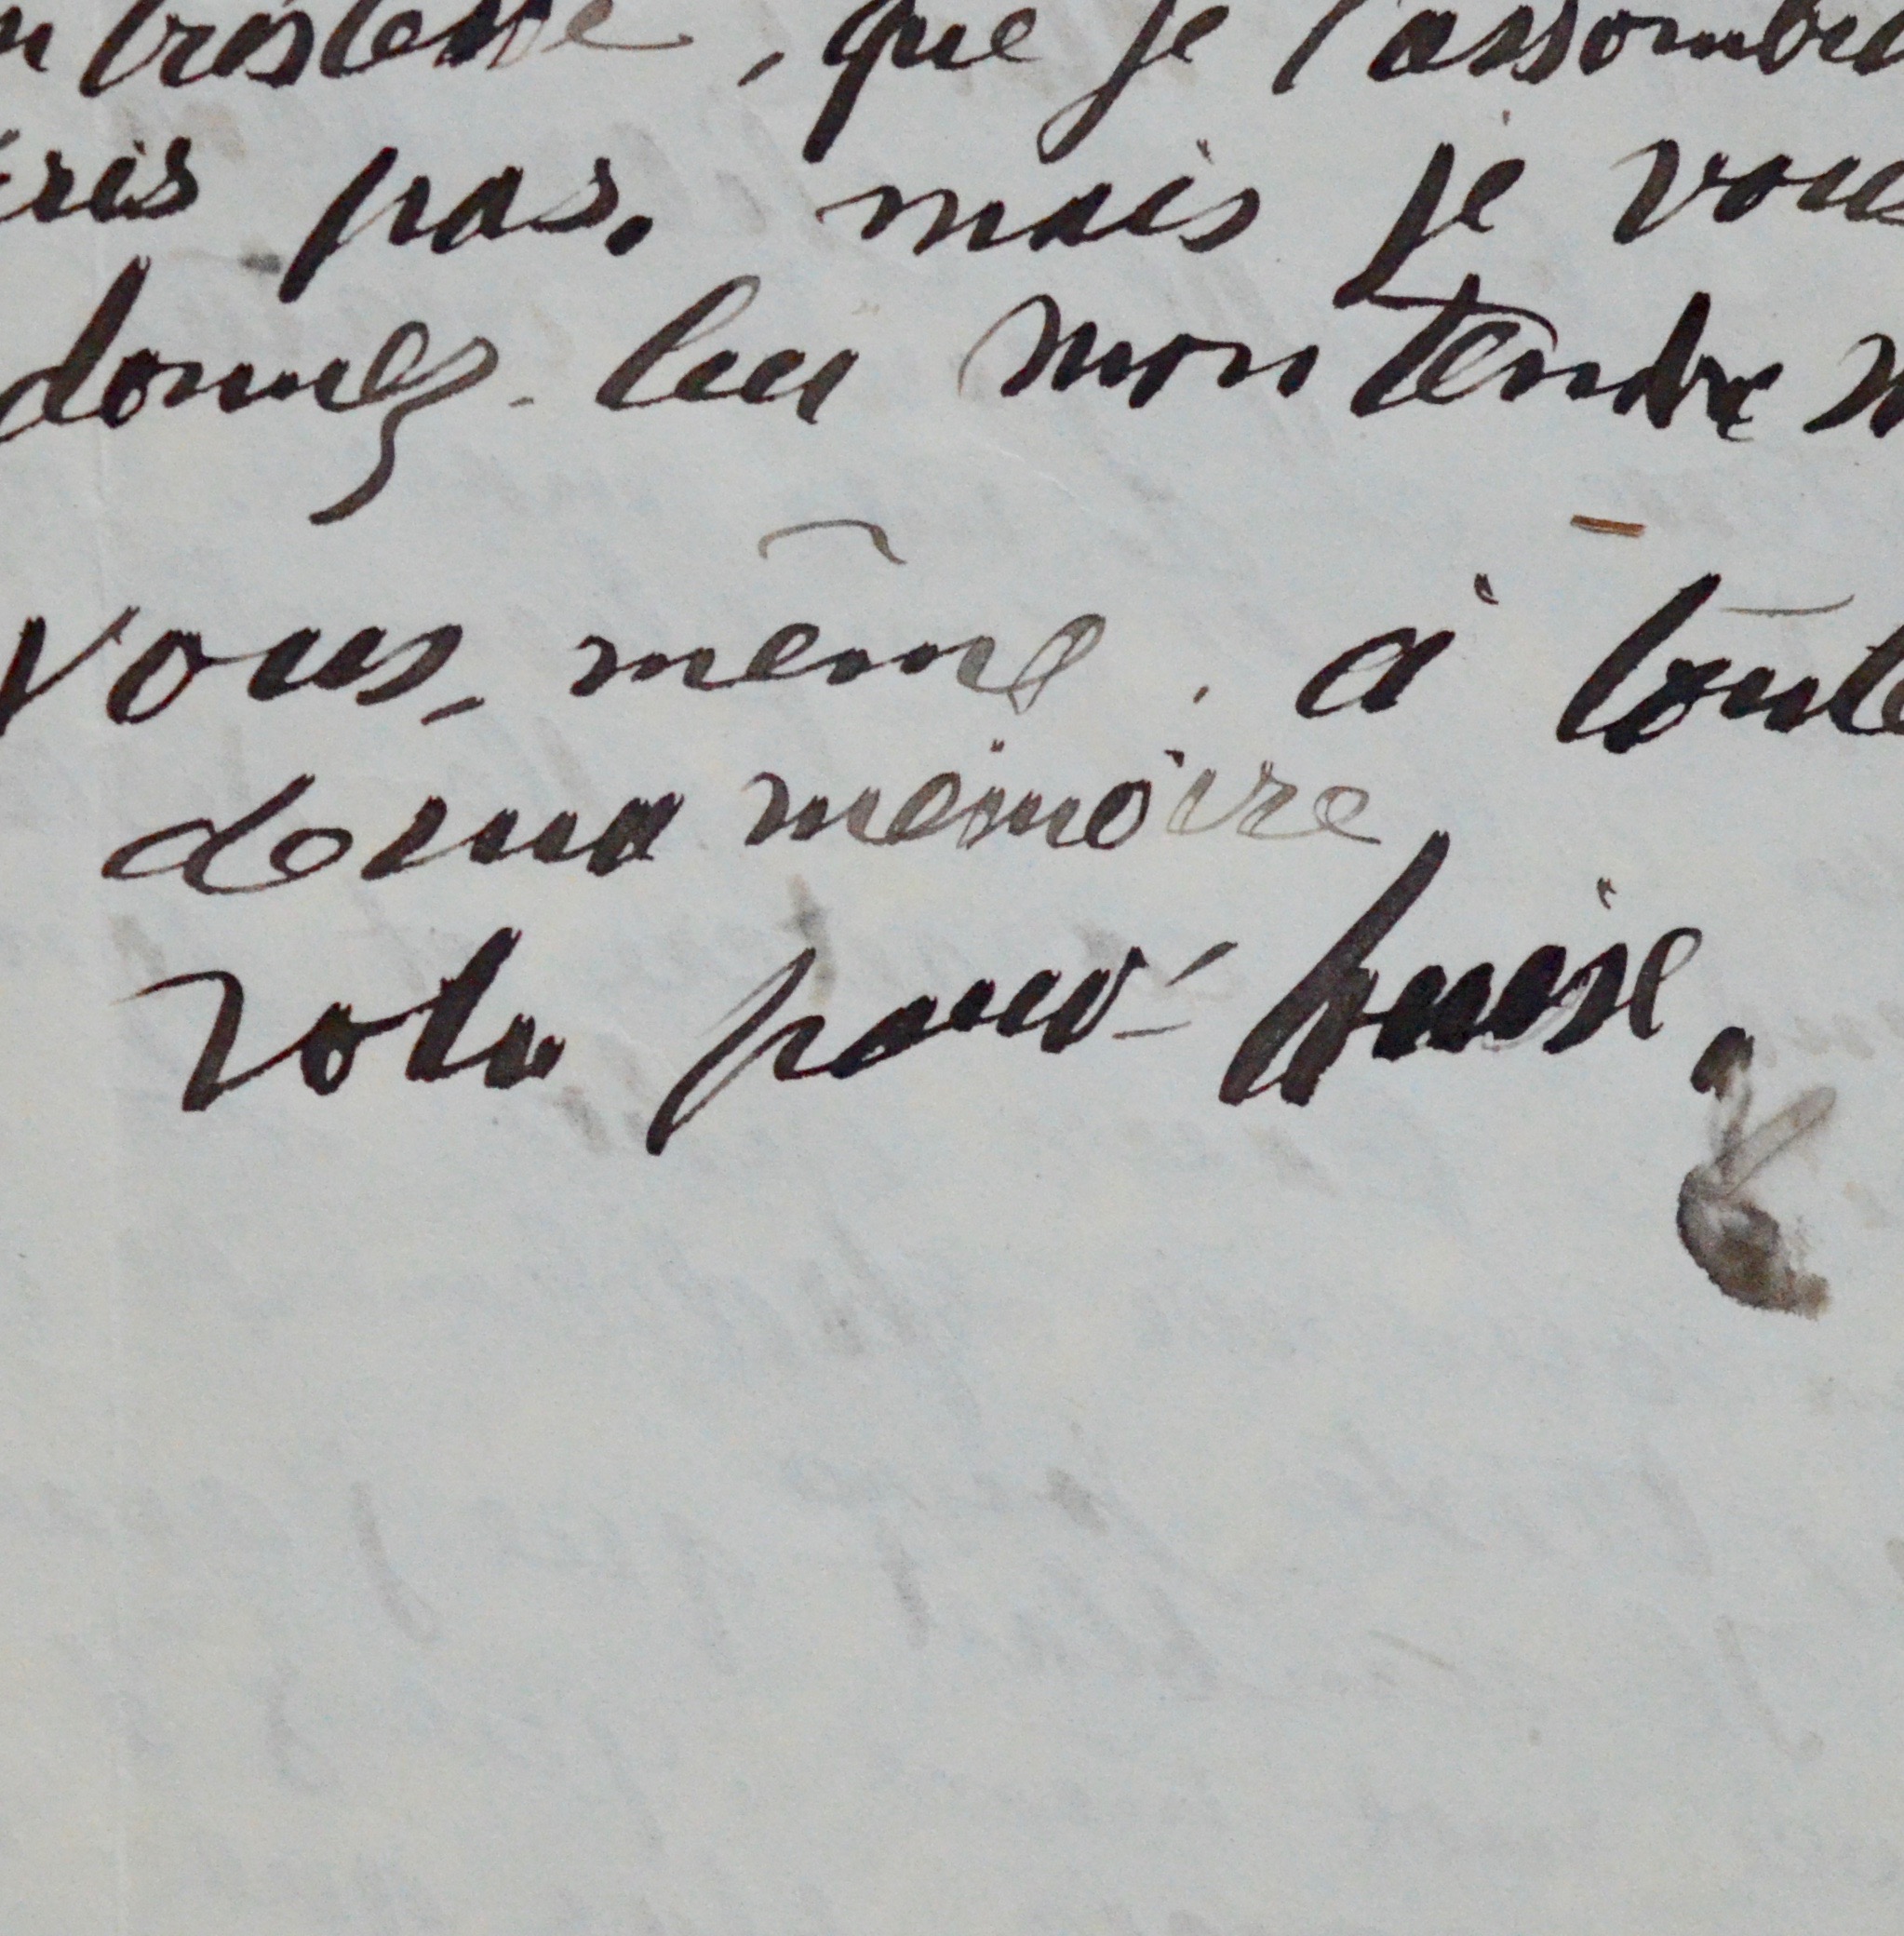 tristesse, que je l'assombri
ris pas. mais je vous
donnez-lui mon tendre
vous-même. à toute
deux mémoire
votre pauv- Louise.